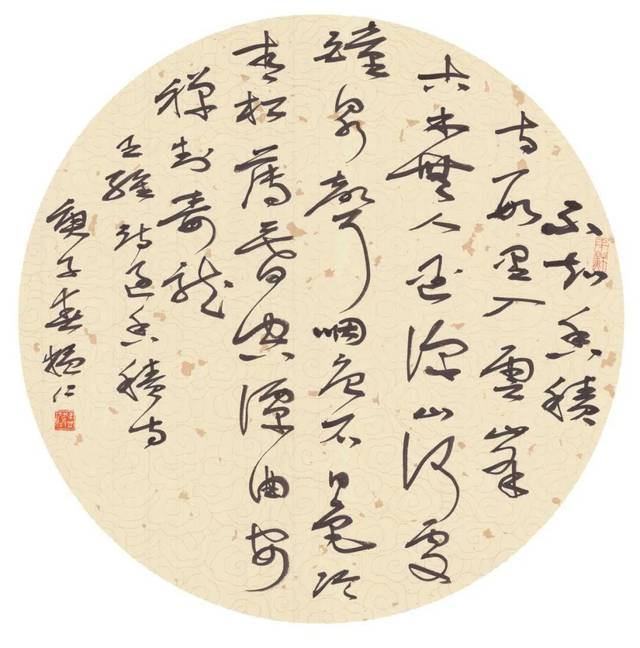 不知香積
寺数里入雲峯
古木無人逕深山何處
鐘泉聲咽危石日色冷
青松薄暮空潭曲安
禅制毒龍
王維詩過香積寺
庚子春猛仁